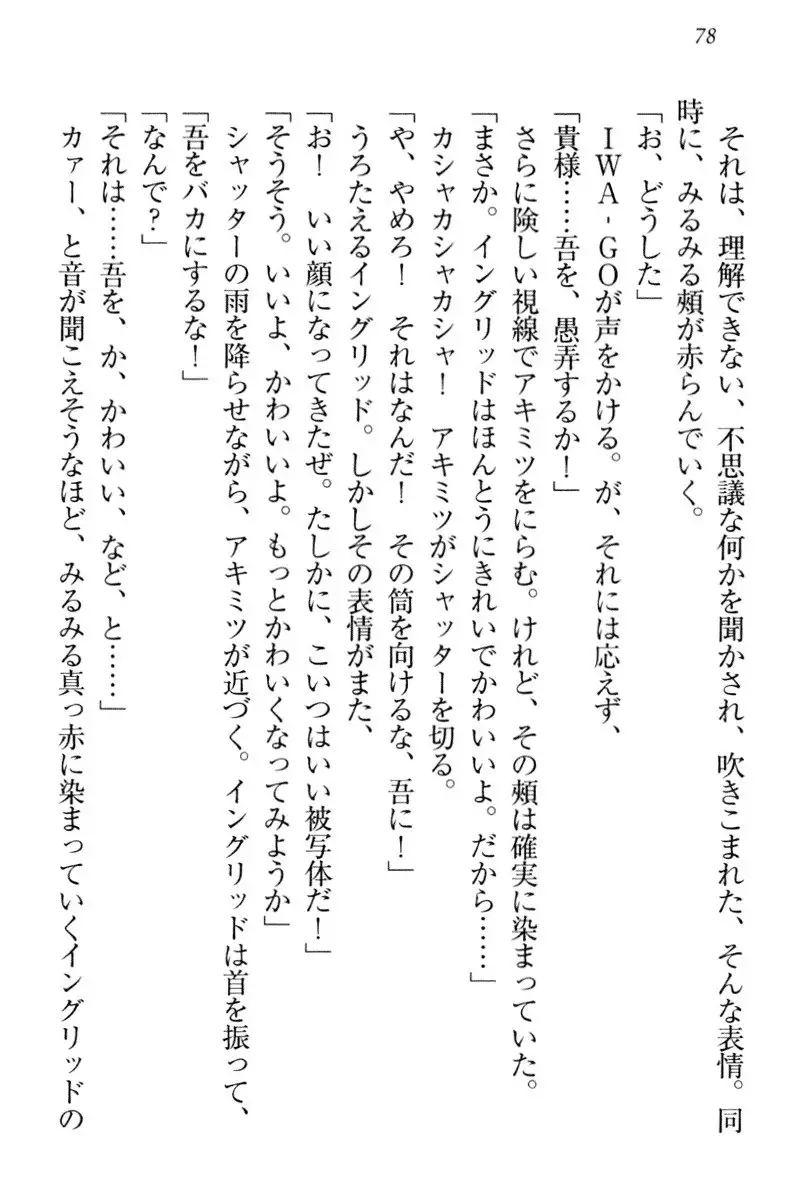 78
それは、理解できない、不思議な何かを聞かされ、吹きこまれた、そんな表情。同
時に、みるみる頰が赤らんでいく。
「お、どうした」
IWA-GOが声をかける。が、それには応えず、
「貴様……吾を、愚弄するか！」
さらに険しい視線でアキミツをにらむ。けれど、その頰は確実に染まっていた。
「まさか。イングリッドはほんとうにきれいでかわいいよ。だから……」
カシャカシャカシャ！　アキミツがシャッターを切る。
「や、やめろ！　それはなんだ！　その筒を向けるな、吾に！」
うろたえるイングリッド。しかしその表情がまた、
「お！　いい顔になってきたぜ。たしかに、こいつはいい被写体だ！」
「そうそう。いいよ、かわいいよ。もっとかわいくなってみようか」
シャッターの雨を降らせながら、アキミツが近づく。イングリッドは首を振って、
「吾をバカにするな！」
「なんで？」
「それは……吾を、か、かわいい、など、と……」
カァー、と音が聞こえそうなほど、みるみる真っ赤に染まっていくイングリッドの